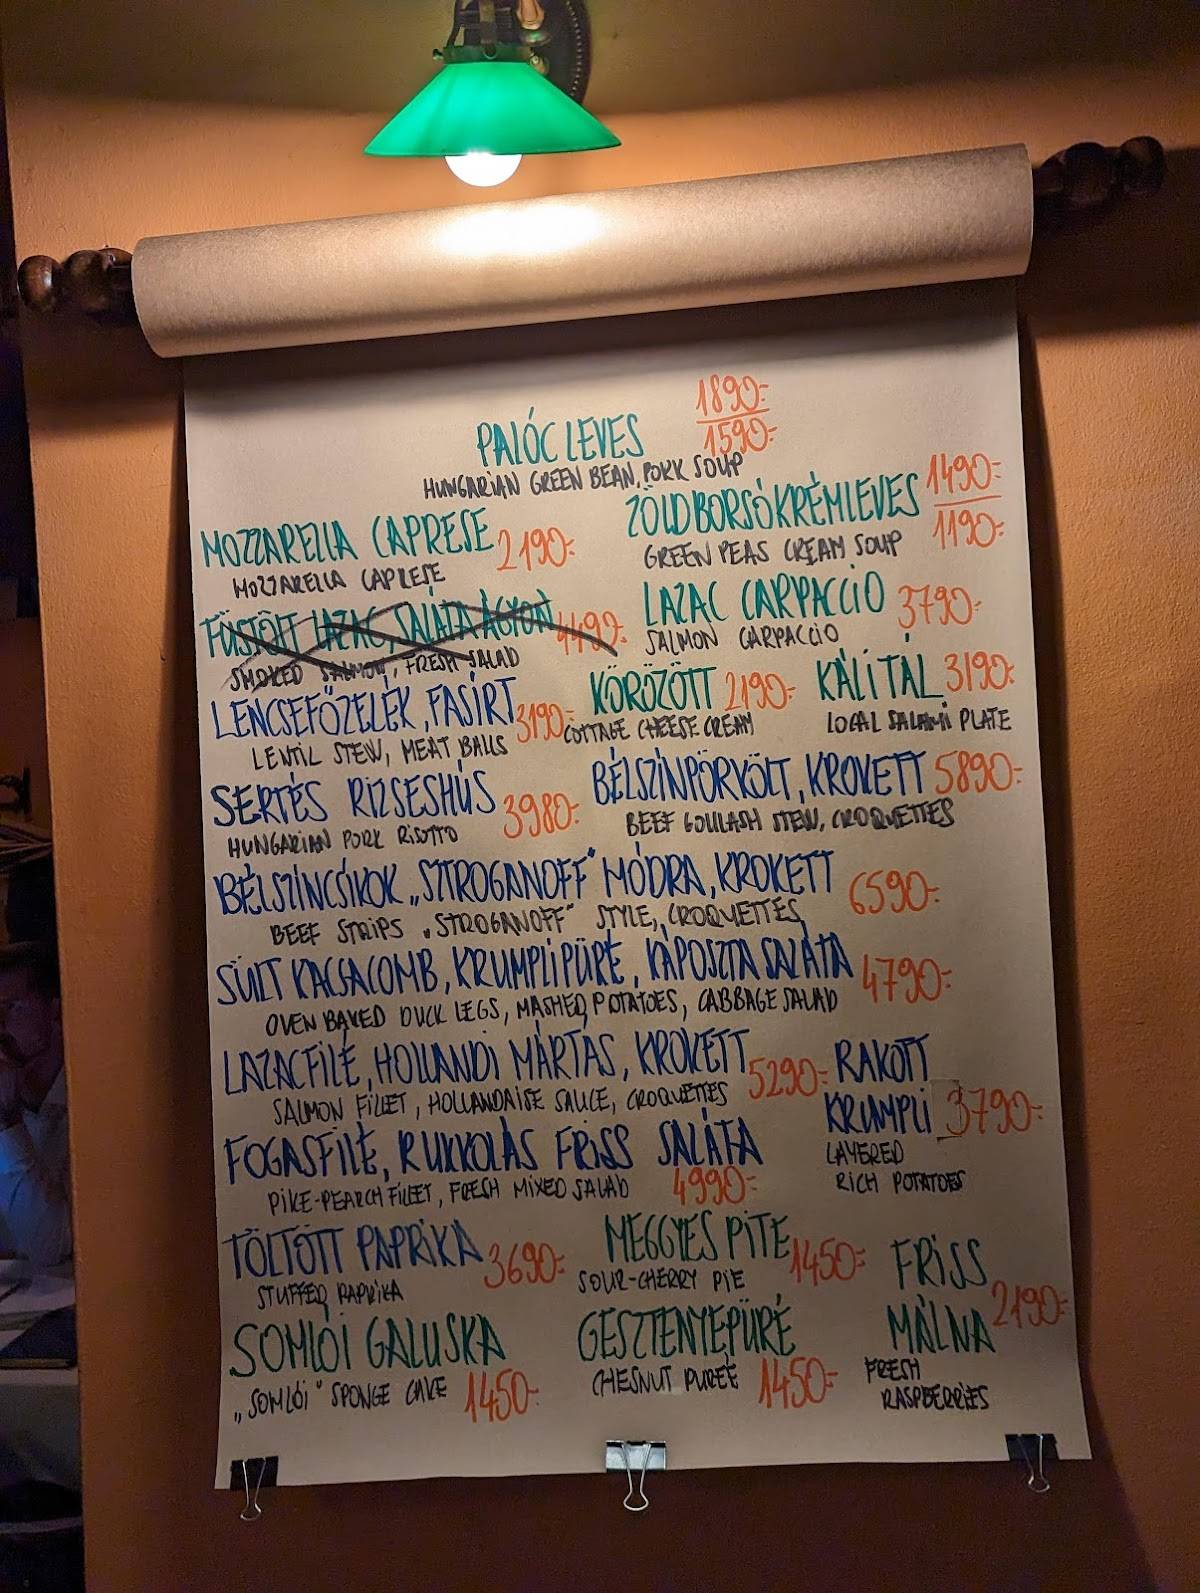 1890:-
PALÓC LEVES 1590:-
HUNGARIAN GREEN BEAN, PORK SOUP
MOZZARELLA CAPRESE 2190:-
MOZZARELLA CAPRESE
ZÖLDBORSÓKRÉMLEVES 1490:-
1190:-
GREEN PEAS CREAM SOUP
FÜSTÖLT LAZAC, SALÁTA ÁGYON 4490:-
SMOKED SALMON, FRESH SALAD
LAZAC CARPACCIO 3790:-
SALMON CARPACCIO
LENCSEFŐZELÉK, FASÍRT 3190:-
LENTIL STEW, MEAT BALLS
KÖRÖZÖTT 2190:-
COTTAGE CHEESE CREAM
KÁLI TÁL 3190:-
LOCAL SALAMI PLATE
SERTÉS RIZSESHÚS 3980:-
HUNGARIAN PORK RISOTTO
BÉLSZÍNPÖRKÖLT, KROKETT 5890:-
BEEF GOULASH STEW, CROQUETTES
BÉLSZÍNCSÍKOK „SZTROGANOFF" MÓDRA, KROKETT 6590:-
BEEF STRIPS „STROGANOFF" STYLE, CROQUETTES
SÜLT KACSACOMB, KRUMPLIPÜRÉ, KÁPOSZTASALÁTA 4790:-
OVEN BAKED DUCK LEGS, MASHED POTATOES, CABBAGE SALAD
LAZACFILÉ, HOLLANDI MÁRTÁS, KROKETT 5290:-
SALMON FILLET, HOLLANDAISE SAUCE, CROQUETTES
RAKOTT
KRUMPLI 3790:-
LAYERED
RICH POTATOES
FOGASFILÉ, RUKKOLÁS FRISS SALÁTA
PIKE-PEARCH FILLET, FRESH MIXED SALAD 4990:-
TÖLTÖTT PAPRIKA 3690:-
STUFFED PAPRIKA
MEGGYES PITE 1450:-
SOUR-CHERRY PIE
FRISS
MÁLNA 2190:-
FRESH
RASPBERRIES
SOMLÓI GALUSKA
„SOMLÓI" SPONGE CAKE 1450:-
GESZTENYEPÜRÉ
CHESNUT PUREÉ 1450:-